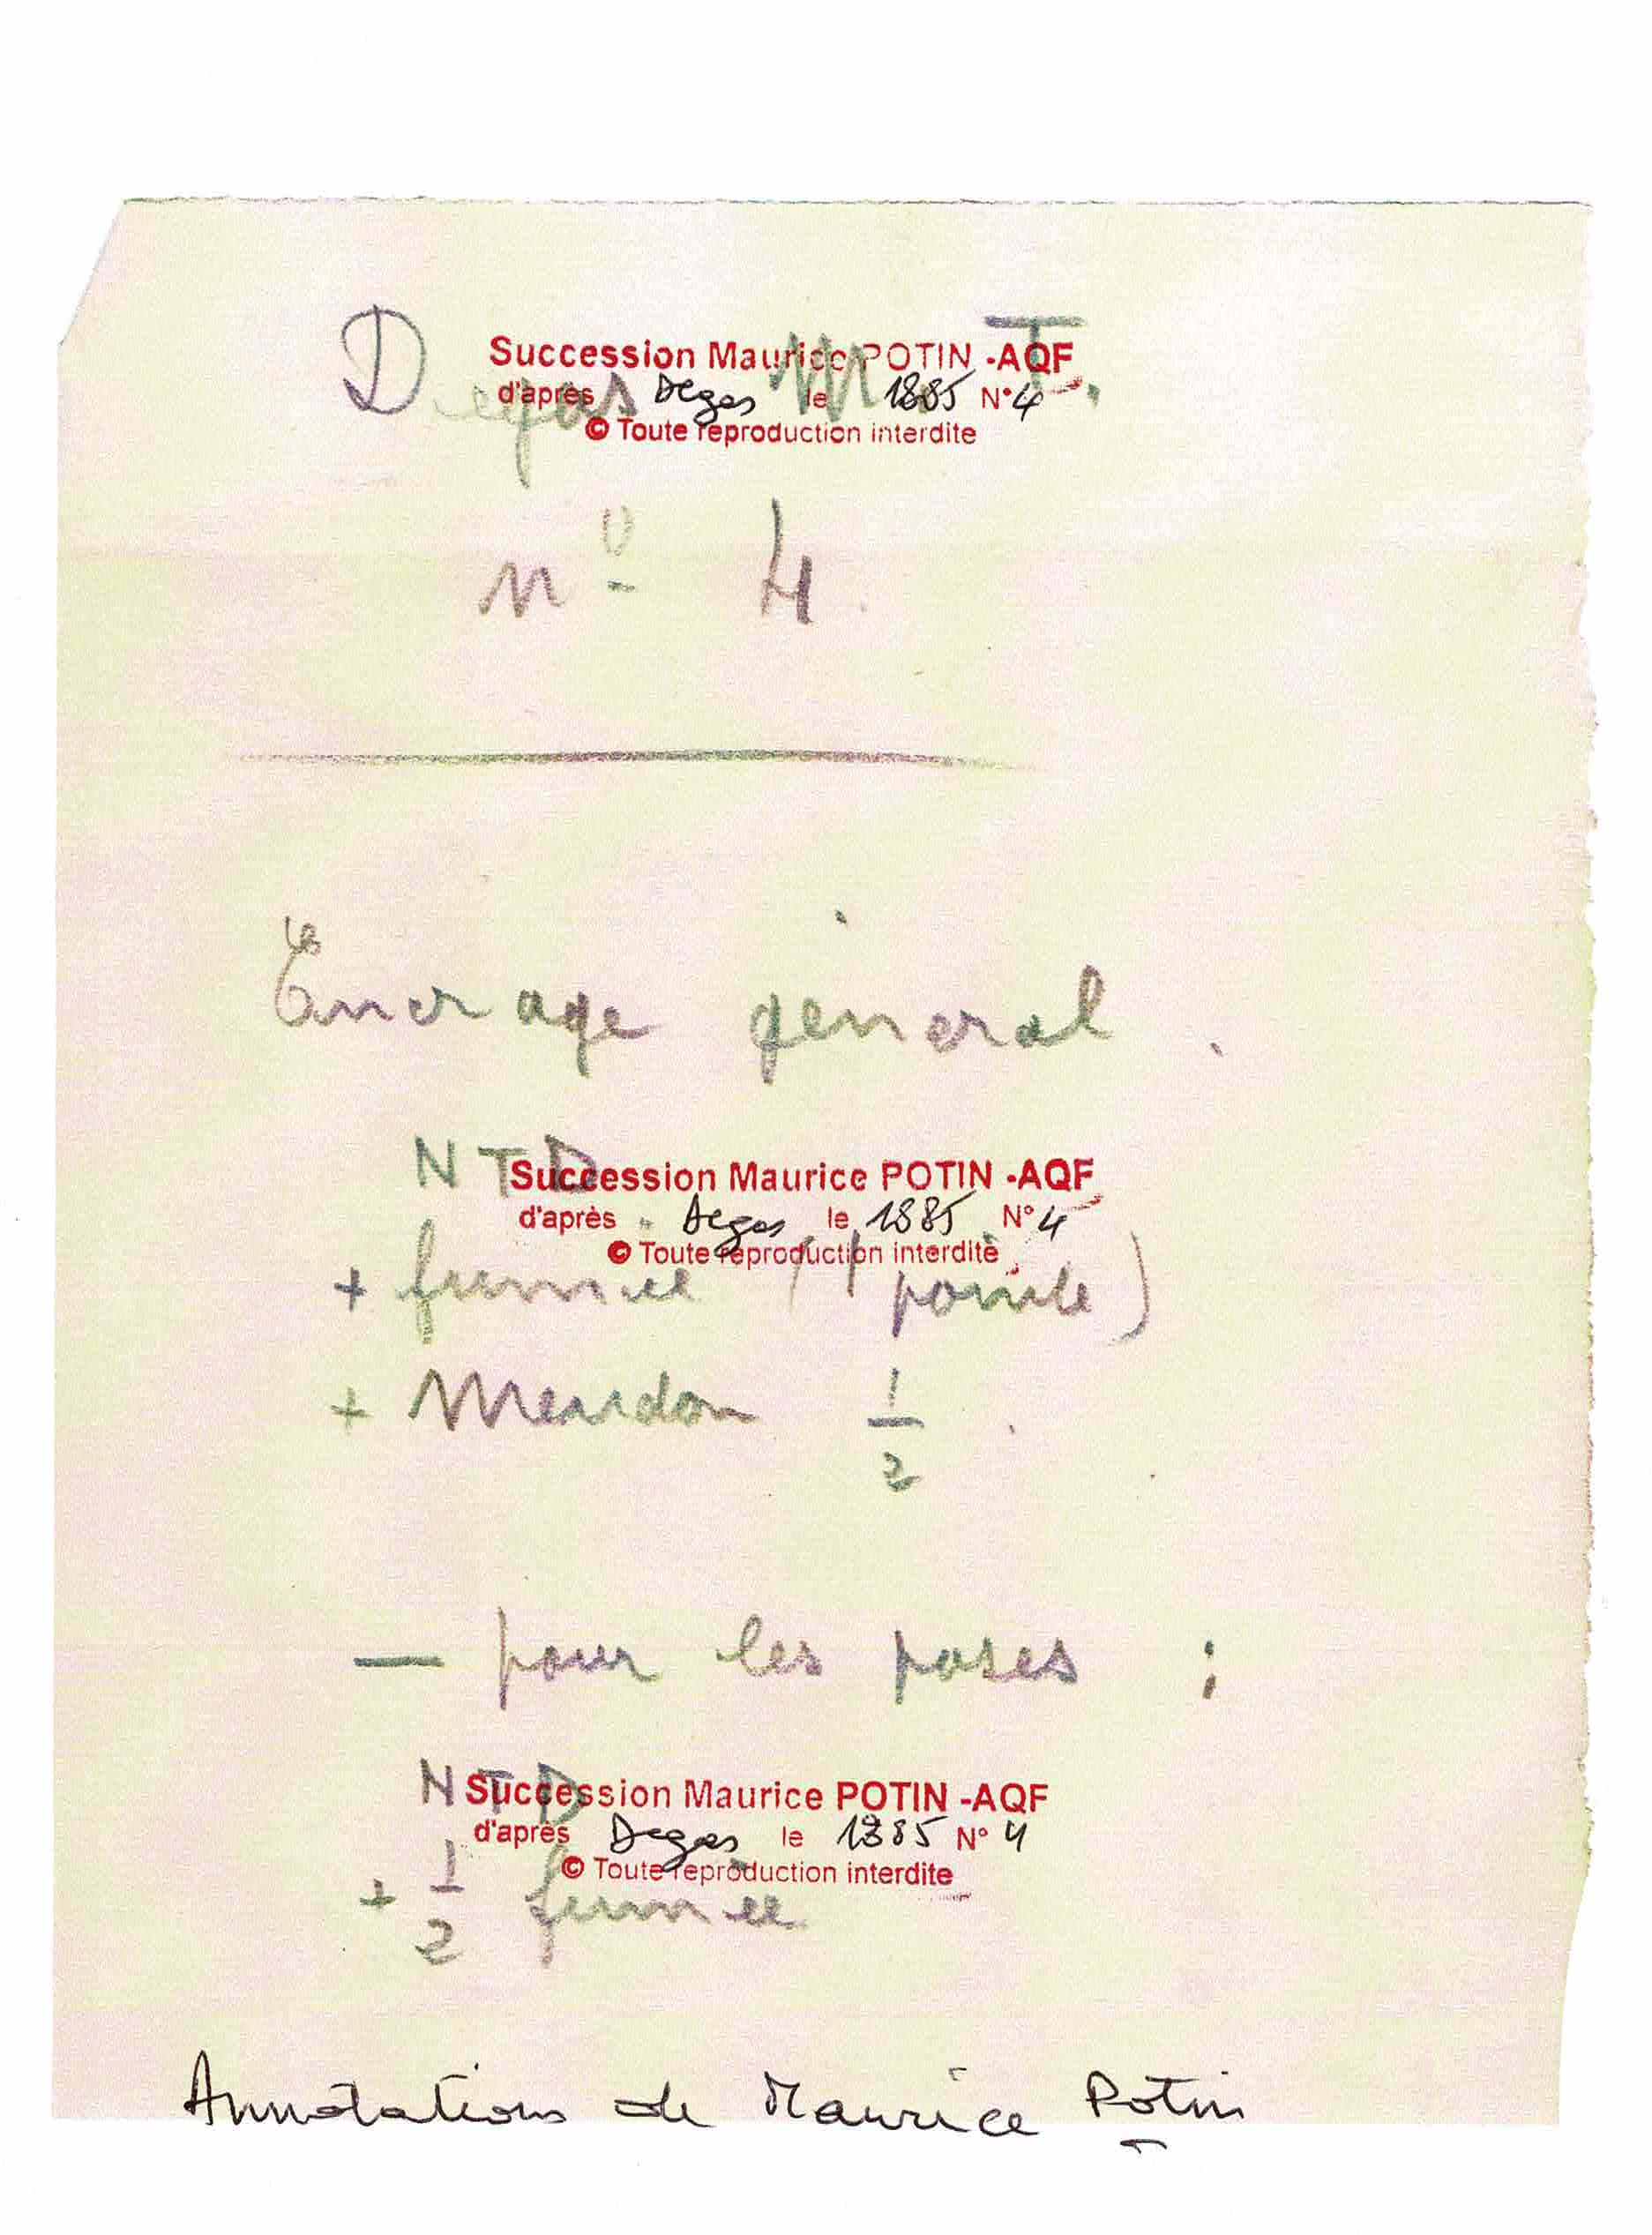 Degas M. T.
Succession Maurice POTIN -AQF
d'après Degas le 1885 N°4
© Toute reproduction interdite
n° 4
Encrage général.
N T D
Succession Maurice POTIN -AQF
d'après Degas le 1885 N°4
© Toute reproduction interdite
+ fumée (1 pointe)
+ Meudon 1/2.
— pour les poses :
N T D
Succession Maurice POTIN -AQF
d'après Degas le 1885 N° 4
© Toute reproduction interdite
+ 1/2 fumée
Annotations de Maurice Potin